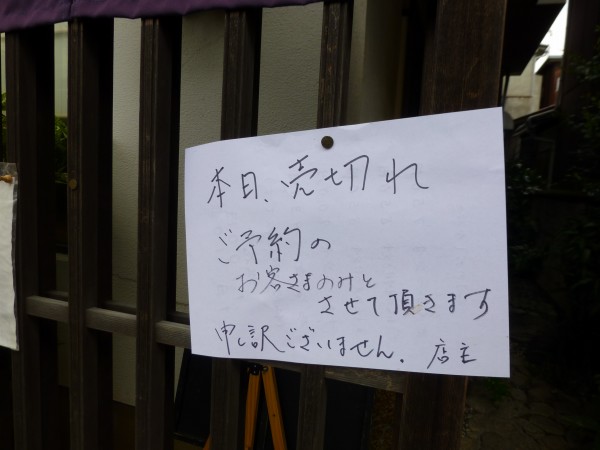 本日、売切れ
ご予約の
お客さまのみと
させて頂きます
申し訳ございません. 店主